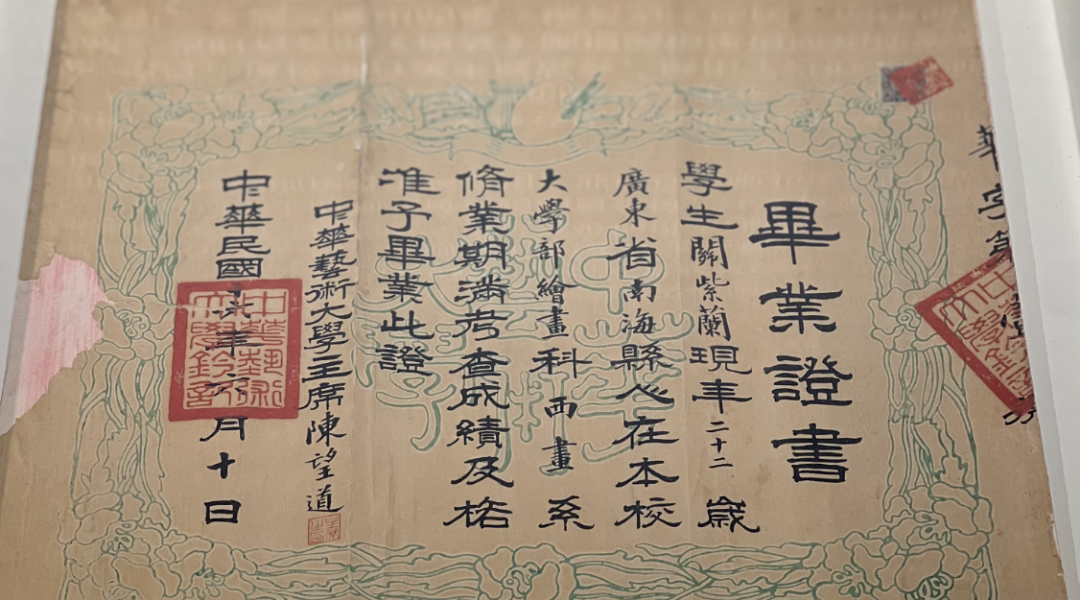 華字第
畢業證書
學生關紫蘭現年二十二歲
廣東省南海縣人在本校
大學部繪畫科西畫系
脩業期滿考查成績及格
准予畢業此證
中華藝術大學主席陳望道
中華民國年六月十日
中華藝術大學鈐記